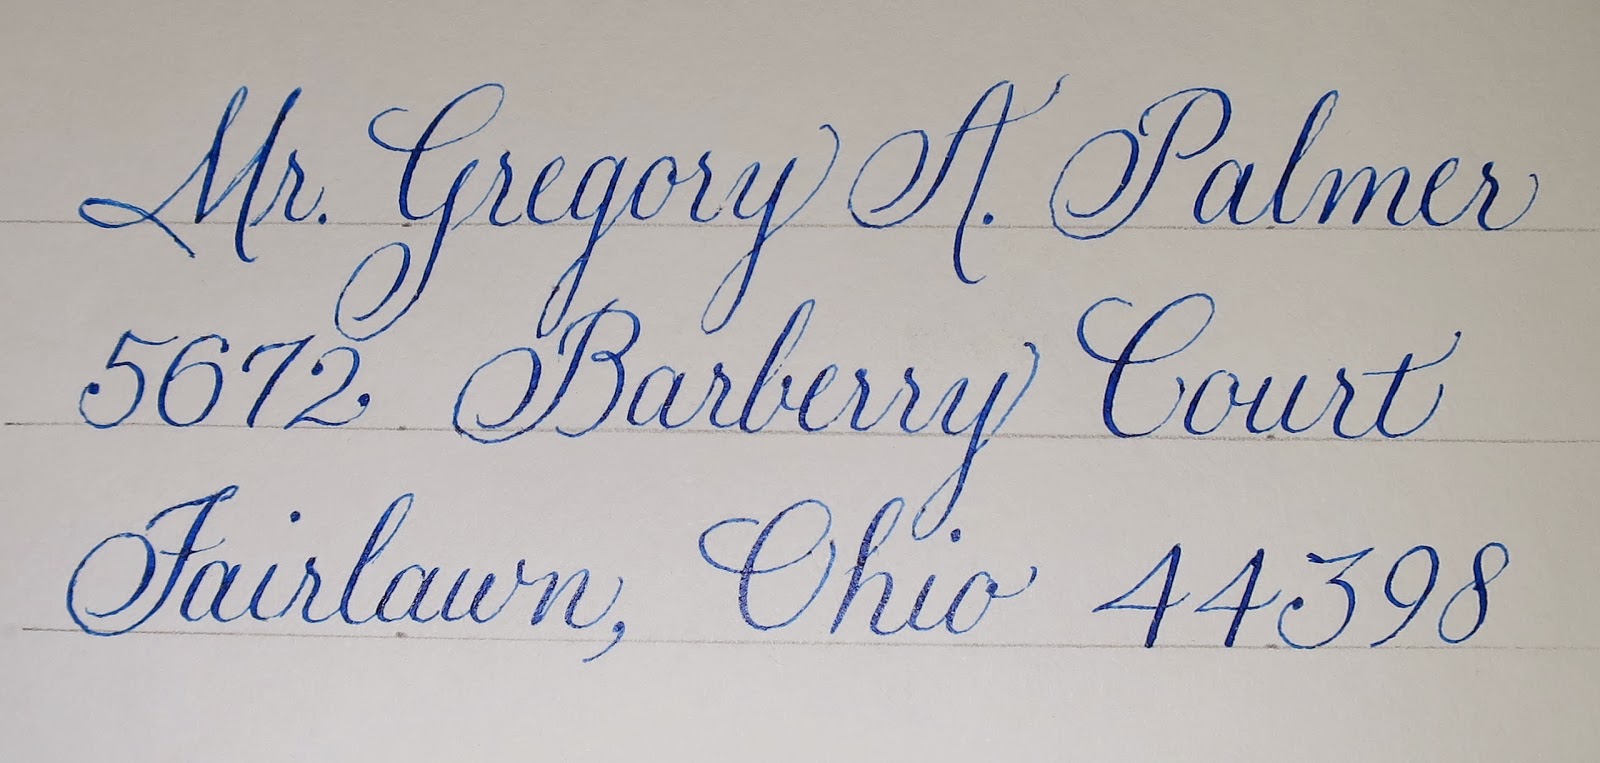 Mr. Gregory A. Palmer
5672 Barberry Court
Fairlawn, Ohio 44398